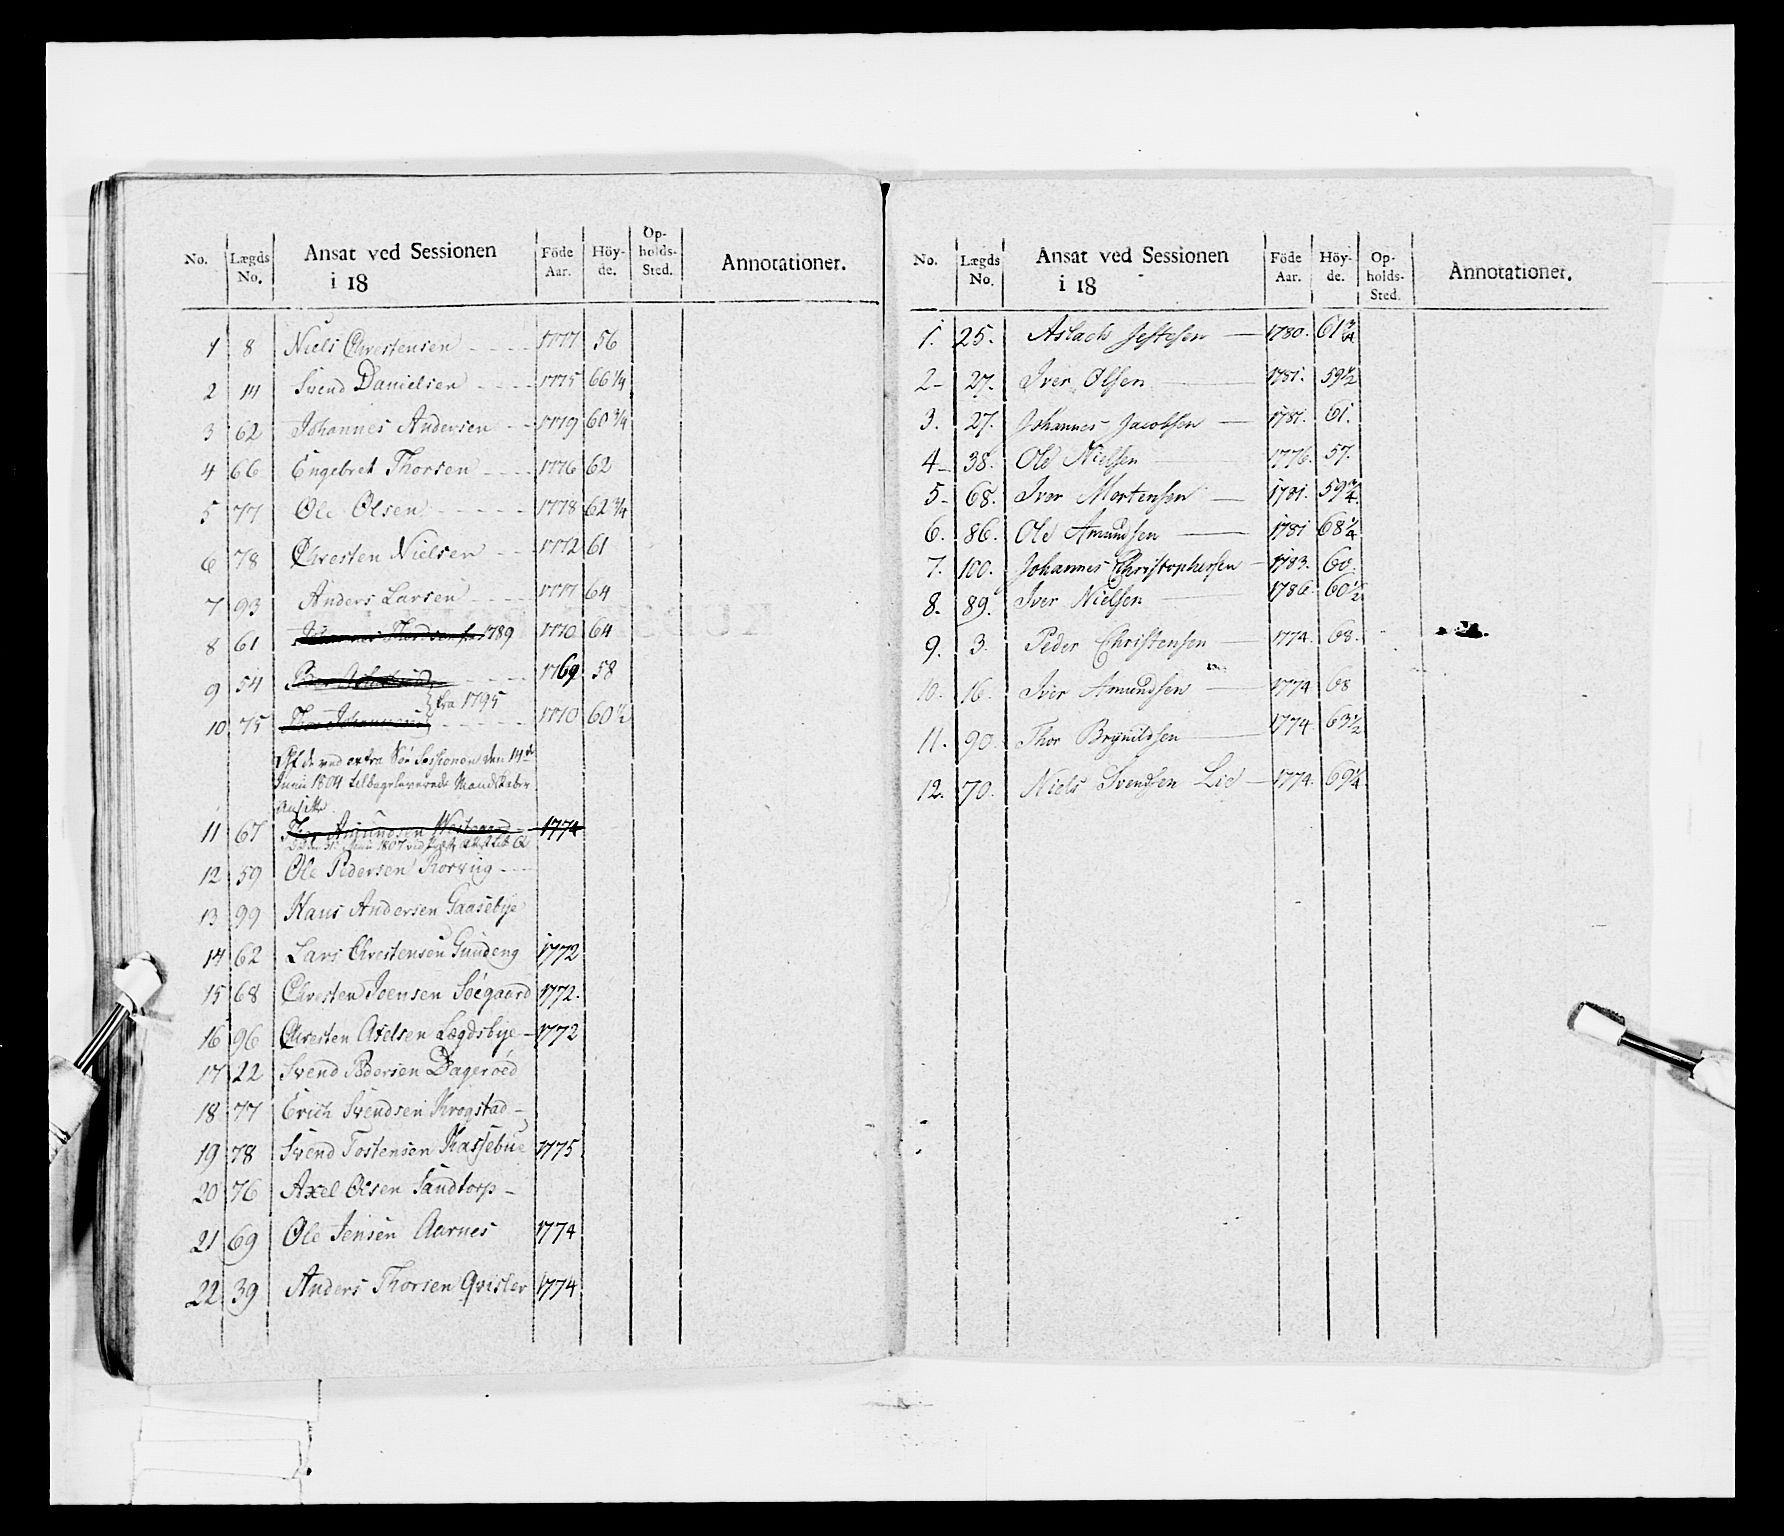 No. Lægds No. Ansat ved Sessionen i 18 Föde Aar. Höy-de. Op-holds-Sted. Annotationer.
1 8 Niels Chrestensen 1777 56
2 14 Svend Danielsen 1775 66 1/4
3 62 Johannes Andersen 1779 60 3/4
4 66 Engebret Thorsen 1776 62
5 77 Ole Olsen 1778 62 3/4
6 78 Chresten Nielsen 1772 61
7 93 Anders Larsen 1777 64
8 61 1789 1770 64
9 54 1769 58
fra 1795
10 75 Johannesen 1770 60 1/2
ved extra Sessionen den 14de
Junii 1804 tilbageleverede Mandskaber
ansatte
11 67 Thor Amundsen 1774
12 59 Ole Pedersen Korving
13 99 Hans Andersen Gaasebye
14 62 Lars Chrestensen Gundeng 1772
15 68 Chresten Joensen Söegaard 1772.
16 96 Chresten Axelsen Lægdsbye 1772
17 22 Svend Pedersen Dageröed
18 77 Erich Svendsen Krogstad
19 78 Svend Tostensen Kassebue 1775
20 76 Axel Olsen Sandtorp
21 69 Ole Jensen Aarnes 1774
22 39 Anders Thorsen Qvister 1774
No. Lægds No. Ansat ved Sessionen i 18 Föde Aar. Höy-de. Op-holds-Sted. Annotationer.
1. 25. Aslach 1780. 61 3/4
2 27. Iver Olsen 1781. 59 1/2
3. 27. Johannes Jacobsen 1781. 61.
4 38. Ole Nielsen 1776. 57.
5 68. Iver Mortensen 1781. 59 3/4
6. 86. Ole Amundsen 1781 68 1/4
7. 100. Johannes Christophersen 1783. 60.
8. 89. Iver Nielsen 1786. 60 1/2
9. 3. Peder Christensen 1774. 68.
10. 16. Iver Amundsen 1774 68
11. 90. Thor Brynildsen 1774 63 1/2
12. 70. Niels Svendsen Lie 1774. 69 1/4